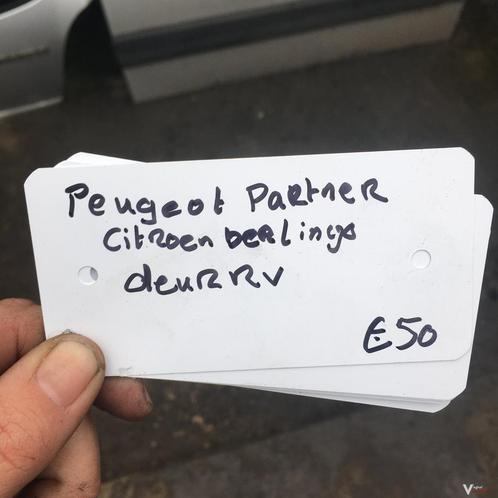 Peugeot Partner
Citroen berlingo
deur RV
€50